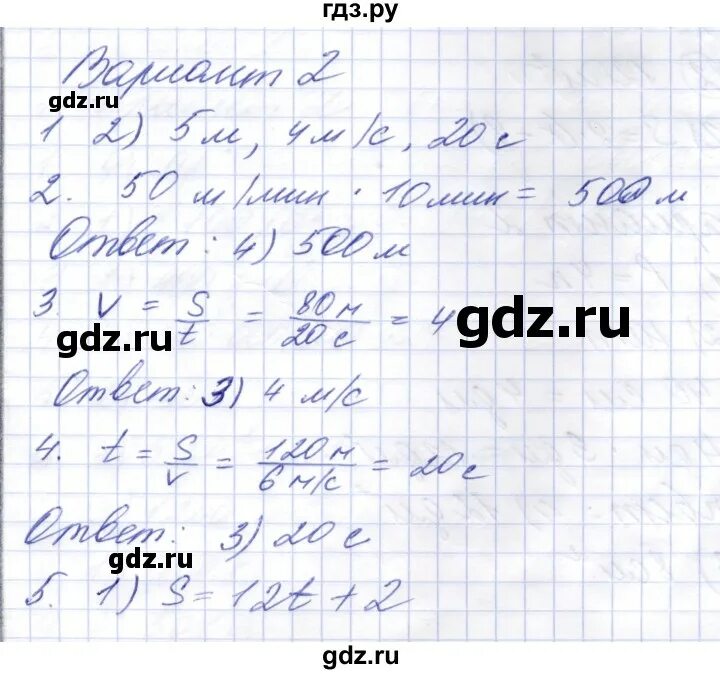 гдз.ру
Вариант 2
gdz.ru
1 2) 5 м, 4 м/с, 20 с
2. 50 м/мин · 10 мин = 500 м
Ответ: 4) 500 м
3. v = S/t = 80 м/20 с = 4
gdz.ru
gdz.ru
Ответ: 3) 4 м/с
4. t = S/v = 120 м/6 м/с = 20 с
Ответ: 3) 20 с
gdz.ru
5. 1) S = 12t + 2
gdz.ru